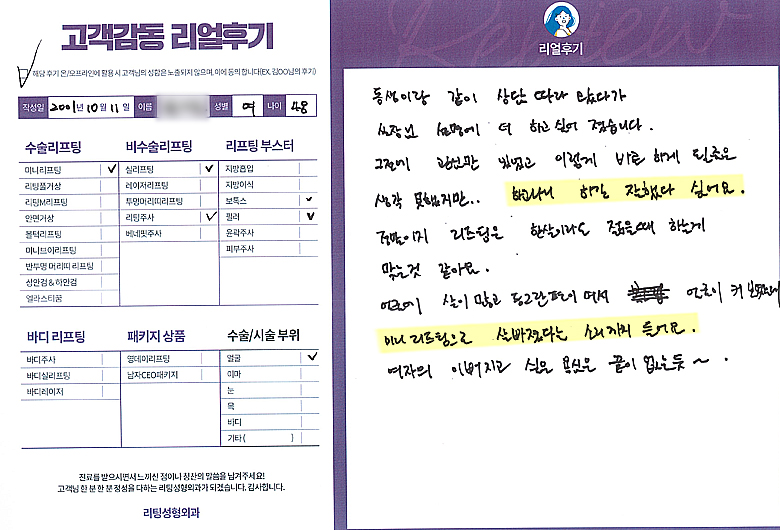 고객감동 리얼후기
해당 후기 온/오프라인에 활용 시 고객님의 성함은 노출되지 않으며, 이에 동의 합니다(EX. 김OO님의 후기)
작성일 2001년 10월 11일 이름 성별 여 나이 48
수술리프팅
미니리프팅 ✓
리팅풀거상
리팅M리프팅
안면거상
볼턱리프팅
미니브이리프팅
반투명 머리띠 리프팅
상안검 & 하안검
엘라스티꿈
비수술리프팅
실리프팅 ✓
레이저리프팅
투명머리띠리프팅
리팅주사 ✓
베네핏주사
리프팅 부스터
지방흡입
지방이식
보톡스 ✓
필러 ✓
윤곽주사
피부주사
바디 리프팅
바디주사
바디실리프팅
바디레이저
패키지 상품
영데이리프팅
남자CEO패키지
수술/시술 부위
얼굴 ✓
이마
눈
목
바디
기타 ( )
진료를 받으시면서 느끼신 점이나 칭찬의 말씀을 남겨주세요!
고객님 한 분 한 분 정성을 다하는 리팅성형외과가 되겠습니다. 감사합니다.
리팅성형외과
Review
리얼후기
동생이랑 같이 상담 따라 왔다가
원장님 설명에 더 하고 싶어 졌습니다.
그전에 관심만 있었고 이렇게 바로 하게 될줄은
생각 못했지만.. 하고나니 하길 잘했다 싶어요.
정말이지 리프팅은 한살이라도 젊을때 하는게
맞는것 같아요.
얼굴에 살이 많고 동그란편이여서 얼굴이 커
미니리프팅으로 살빠졌다는 소리까지 들어요.
여자의 이뻐지고 싶은 욕심은 끝이 없는듯 ~ .